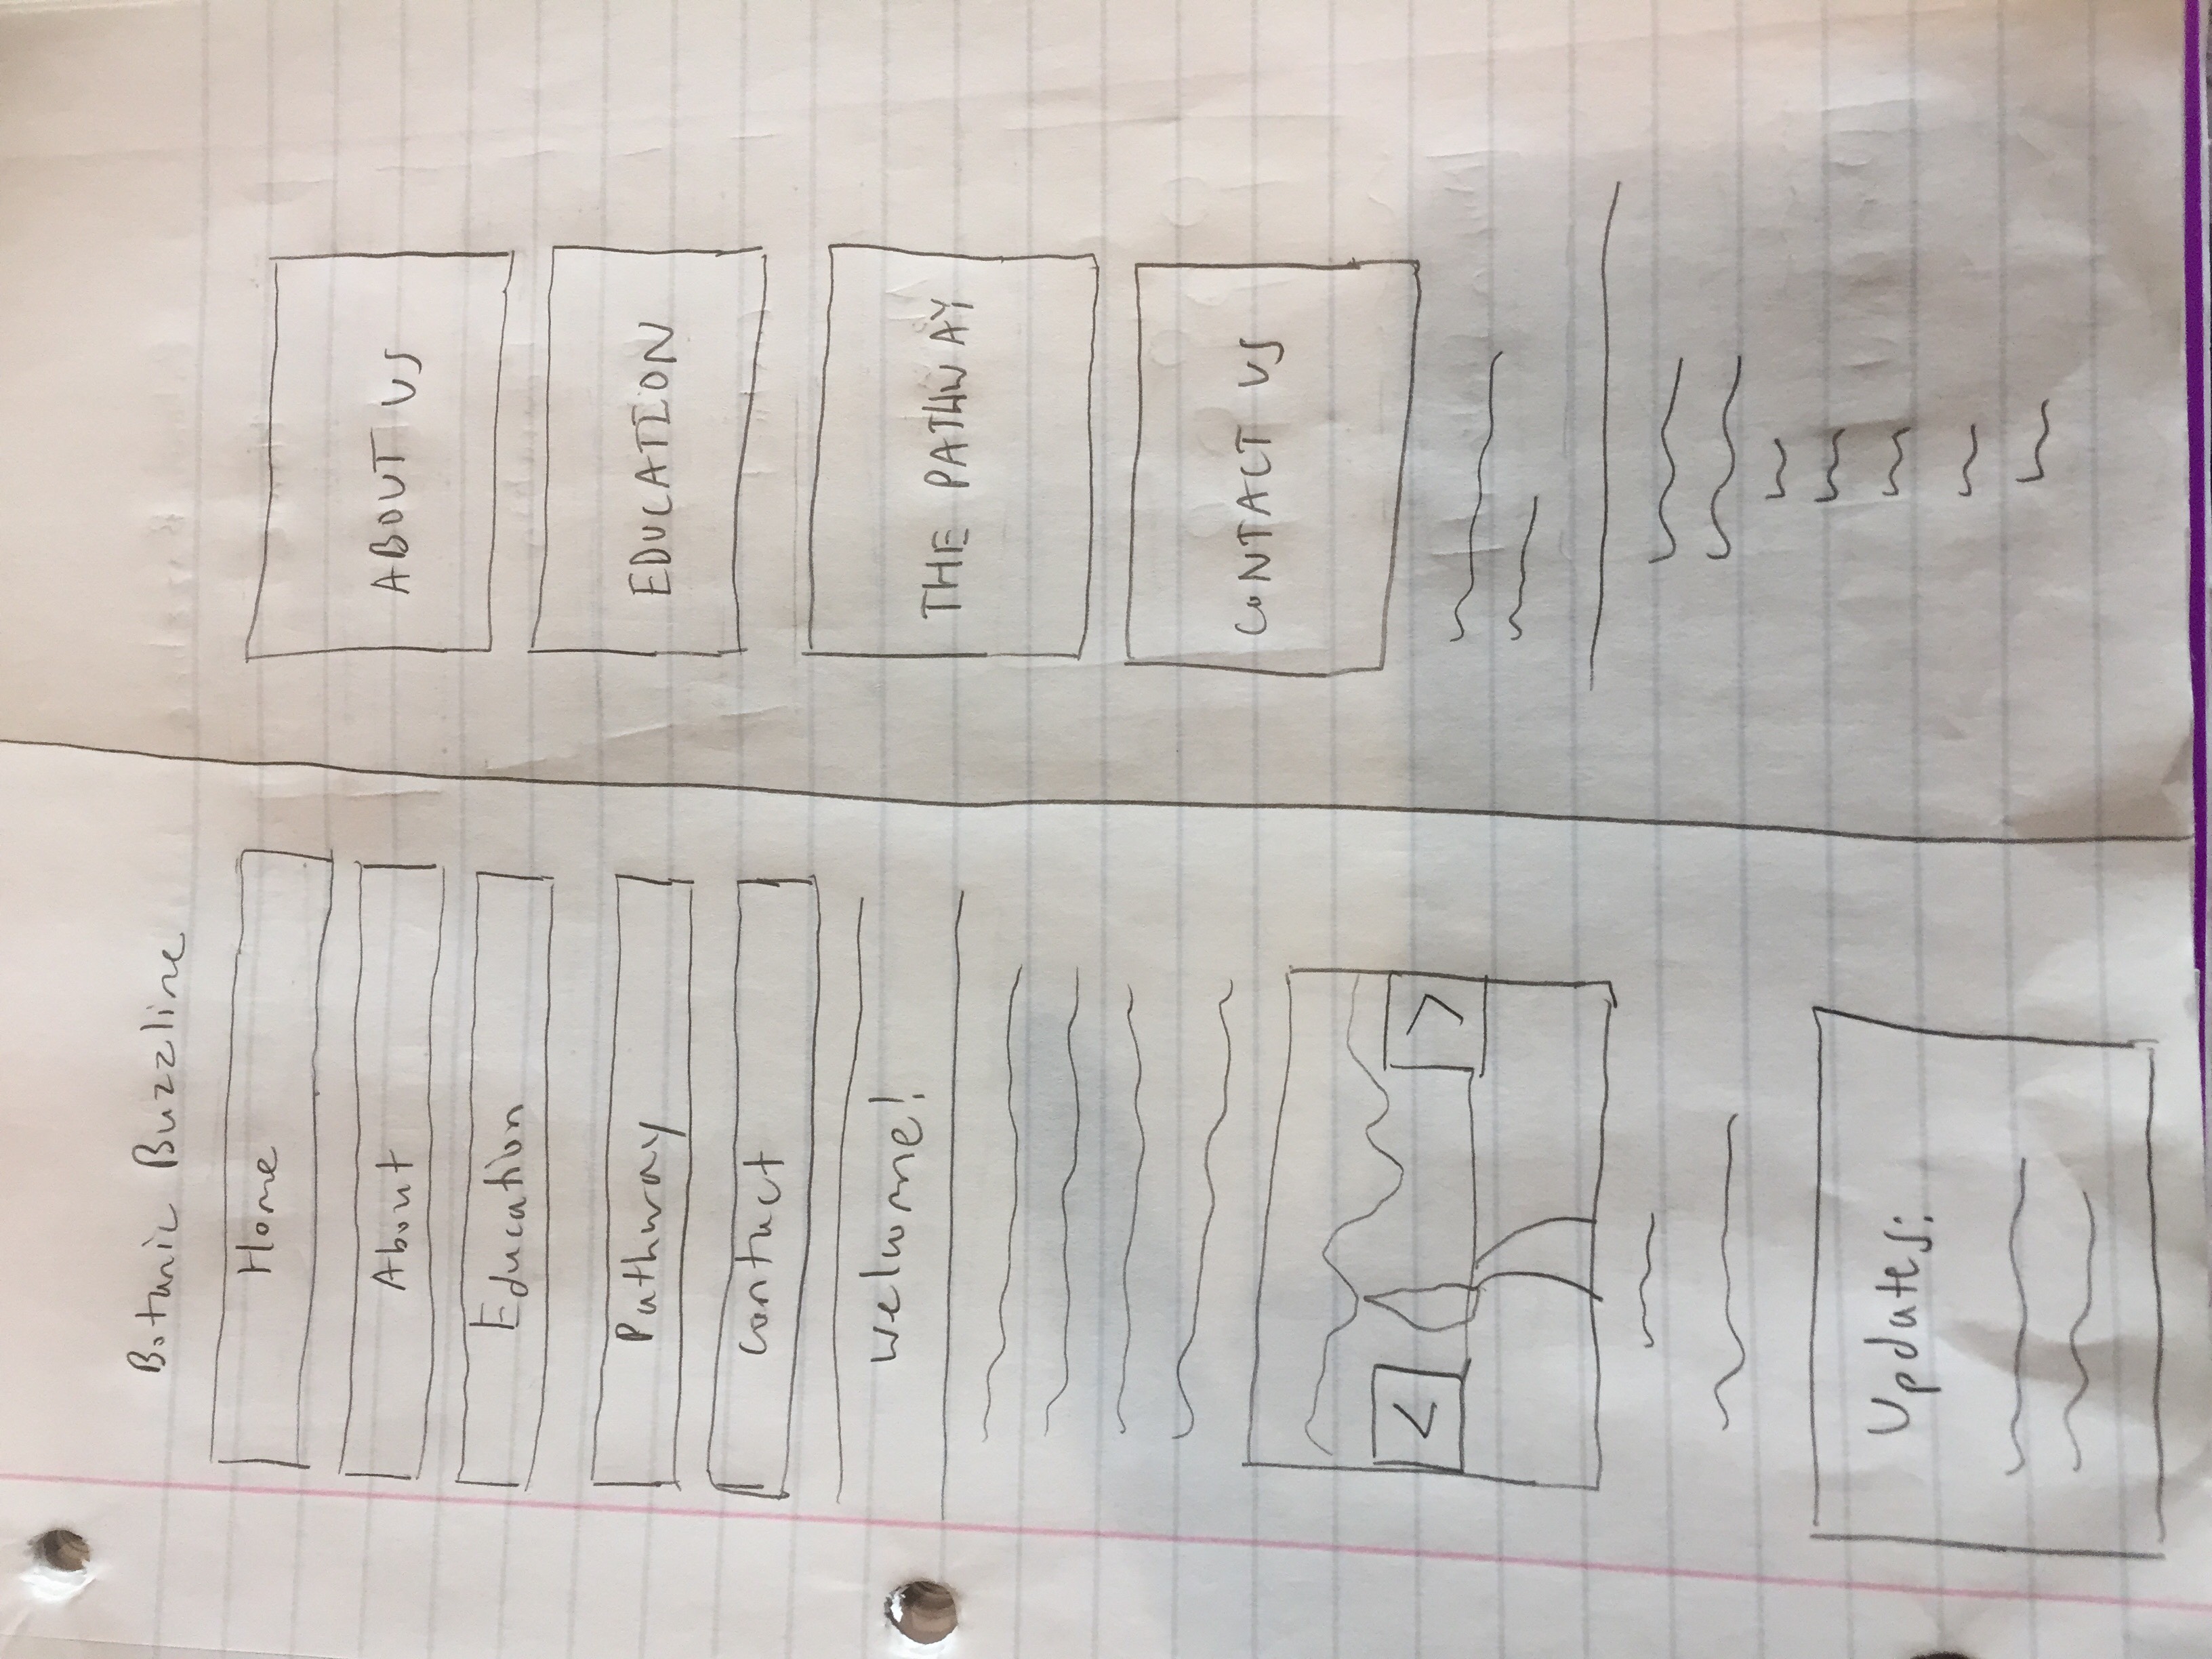 Botanic Buzzline
Home
About
Education
Pathway
Contact
Welcome!
<
>
Updates:
ABOUT US
EDUCATION
THE PATHWAY
CONTACT US